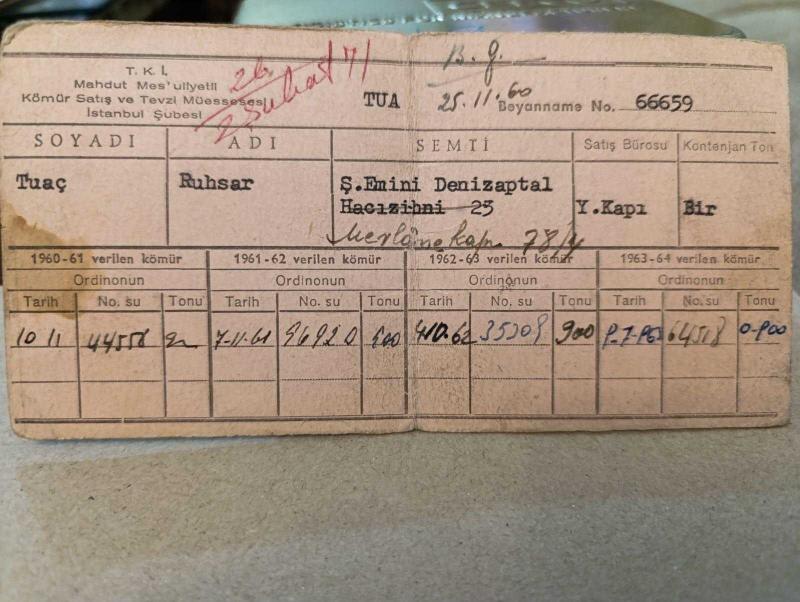 T. K. İ.
Mahdut Mes'uliyetli
Kömür Satış ve Tevzi Müessesesi
İstanbul Şubesi
26 Şubat 71
TUA
B. G.
25.11.60
Beyanname No. 66659
SOYADI ADI SEMTİ Satış Bürosu Kontenjan Ton
Tuaç Ruhsar Ş.Emini Denizaptal Y.Kapı Bir
Hacızihni 25
Mevlânekapı 78/4
1960-61 verilen kömür 1961-62 verilen kömür 1962-63 verilen kömür 1963-64 verilen kömür
Ordinonun Ordinonun Ordinonun Ordinonun
Tarih No. su Tonu Tarih No. su Tonu Tarih No. su Tonu Tarih No. su Tonu
10 11 44558 7-11-61 96920 900 4.10.62 35309 900 64518 0-900